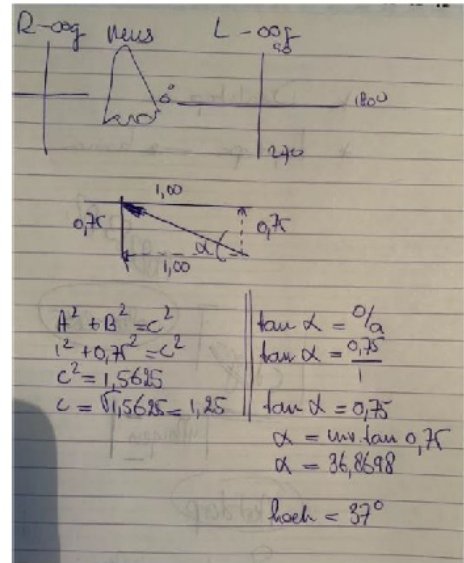 R-oog neus L-oog
90
0 180
270
1,00
0,75 α 0,75
1,00
A² + B² = C²
1² + 0,75² = C²
C² = 1,5625
C = √1,5625 = 1,25
tan α = o/a
tan α = 0,75/1
tan α = 0,75
α = inv. tan 0,75
α = 36,8698
hoek = 37°